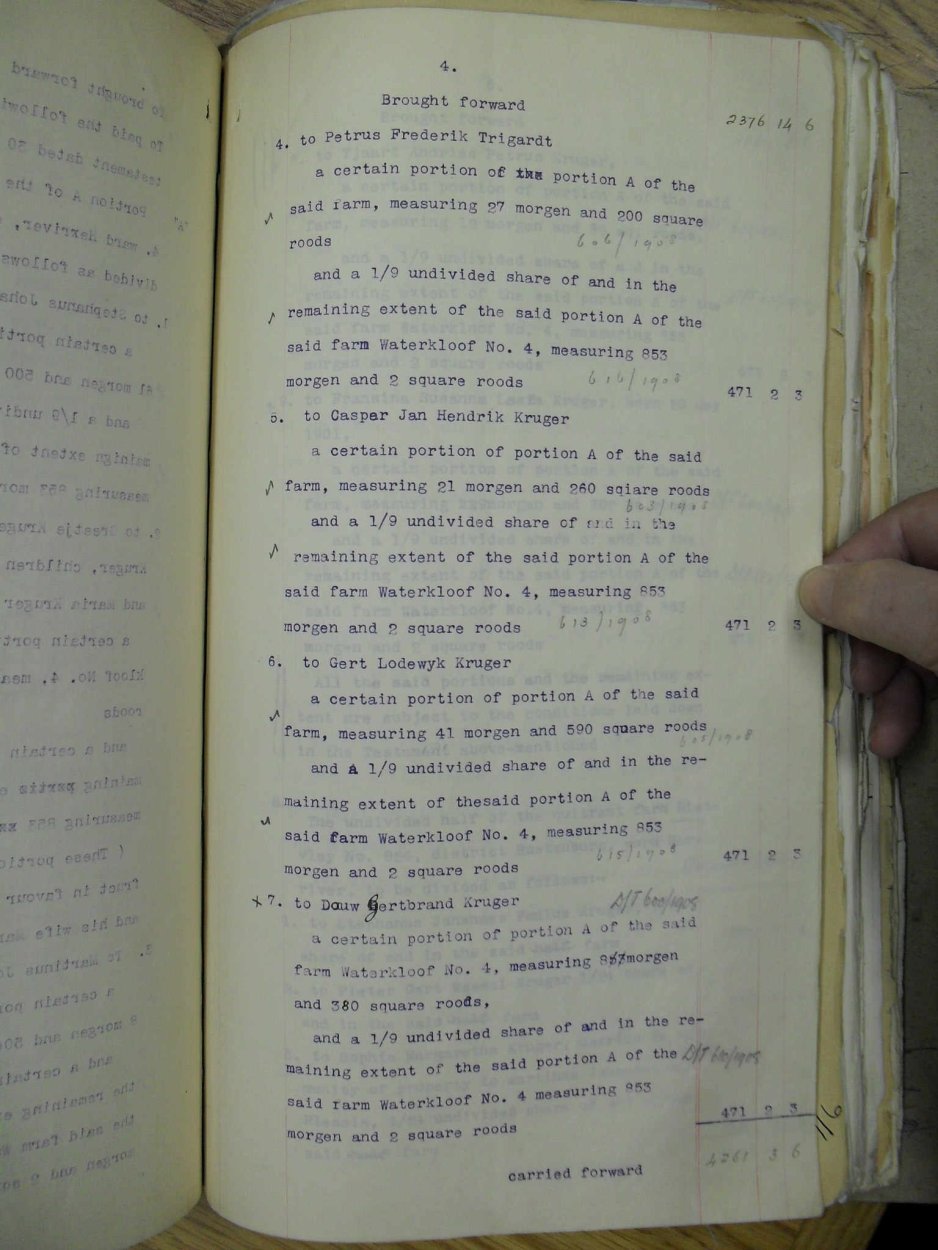 4.
Brought forward
2376 14 6
4. to Petrus Frederik Trigardt
a certain portion of the portion A of the
said farm, measuring 27 morgen and 200 square
roods
606/1908
and a 1/9 undivided share of and in the
remaining extent of the said portion A of the
said farm Waterkloof No. 4, measuring 853
morgen and 2 square roods 616/1908 471 2 3
5. to Casper Jan Hendrik Kruger
a certain portion of portion A of the said
farm, measuring 21 morgen and 260 sqiare roods
603/1908
and a 1/9 undivided share of and in the
remaining extent of the said portion A of the
said farm Waterkloof No. 4, measuring 853
morgen and 2 square roods 613/1908 471 2 3
6. to Gert Lodewyk Kruger
a certain portion of portion A of the said
farm, measuring 41 morgen and 590 square roods
605/1908
and A 1/9 undivided share of and in the re-
maining extent of thesaid portion A of the
said farm Waterkloof No. 4, measuring 853
morgen and 2 square roods 615/1908 471 2 3
x 7. to Douw Gertbrand Kruger D/T 600/1908
a certain portion of portion A of the said
farm Waterkloof No. 4, measuring morgen
and 380 square roods,
and a 1/9 undivided share of and in the re-
maining extent of the said portion A of the D/T 610/1908
said farm Waterkloof No. 4 measuring 853
morgen and 2 square roods 471 2 3
116
4261 3 6
carried forward